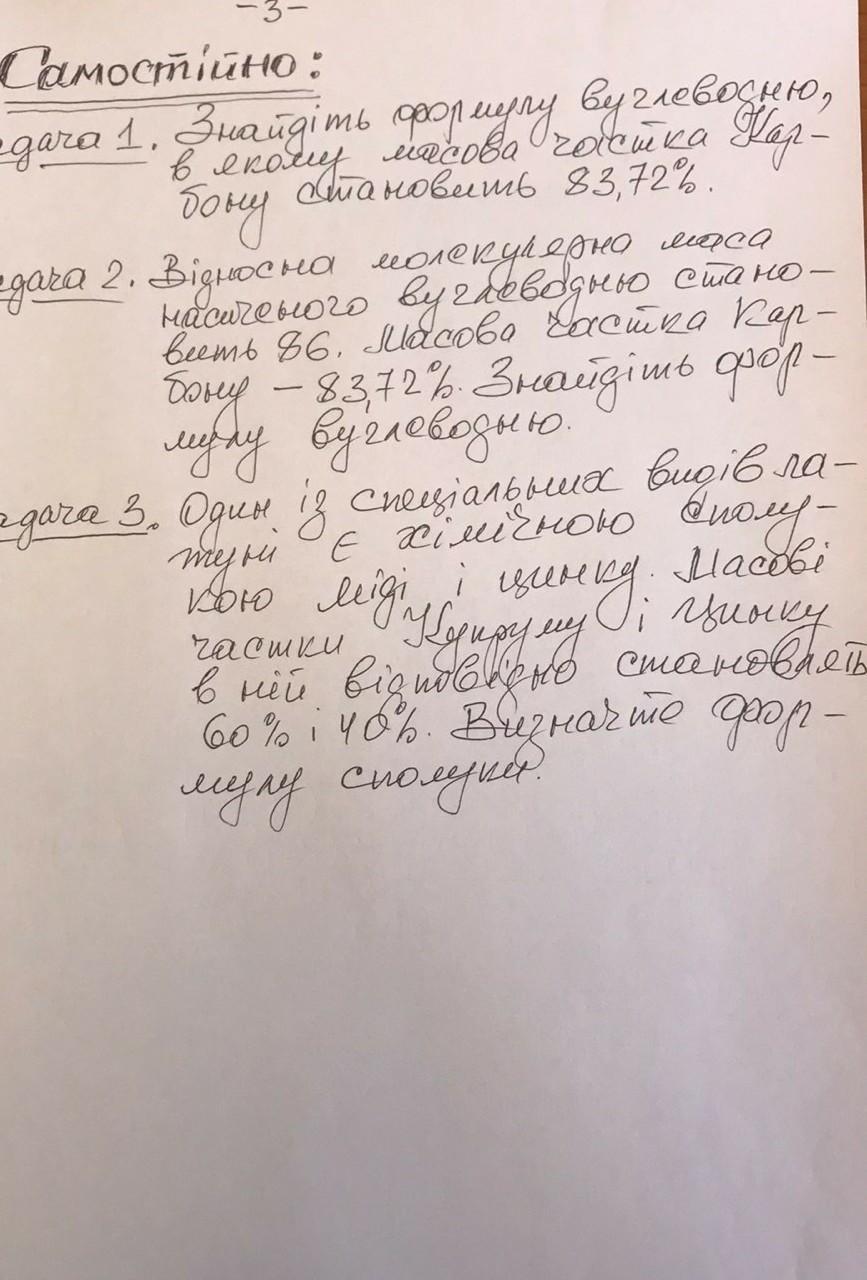 -3-
Самостійно:
адача 1. Знайдіть формулу вуглеводню,
в якому масова частка Кар-
бону становить 83,72%.
адача 2. Відносна молекулярна маса
насиченого вуглеводню стано-
вить 86. Масова частка Кар-
бону – 83,72%. Знайдіть фор-
мулу вуглеводню.
адача 3. Один із спеціальних видів ла-
туні є хімічною сполу-
кою міді і цинку. Масові
частки Купруму і Цинку
в ній відповідно становлять
60% і 40%. Визначте фор-
мулу сполуки.